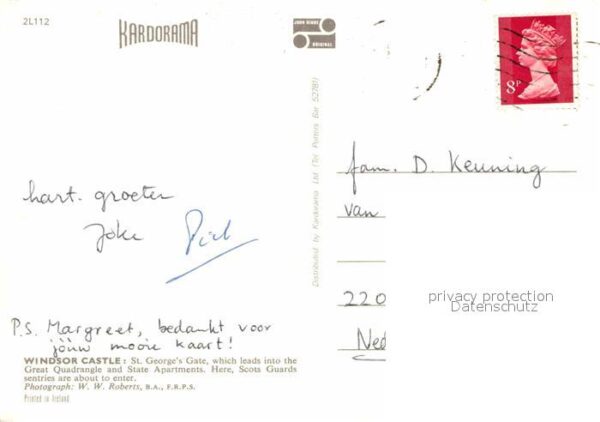 2L112
KARDORAMA
JOHN HINDE
ORIGINAL
8P
hart. groeten
Joke Piet
P.S. Margreet, bedankt voor
jóúw mooie kaart!
WINDSOR CASTLE: St. George's Gate, which leads into the
Great Quadrangle and State Apartments. Here, Scots Guards
sentries are about to enter.
Photograph: W. W. Roberts, B.A., F.R.P.S.
Printed in Ireland
Distributed by Kardorama Ltd (Tel Potters Bar 52781)
fam. D. Keuning
van
220
Ned
privacy protection
Datenschutz